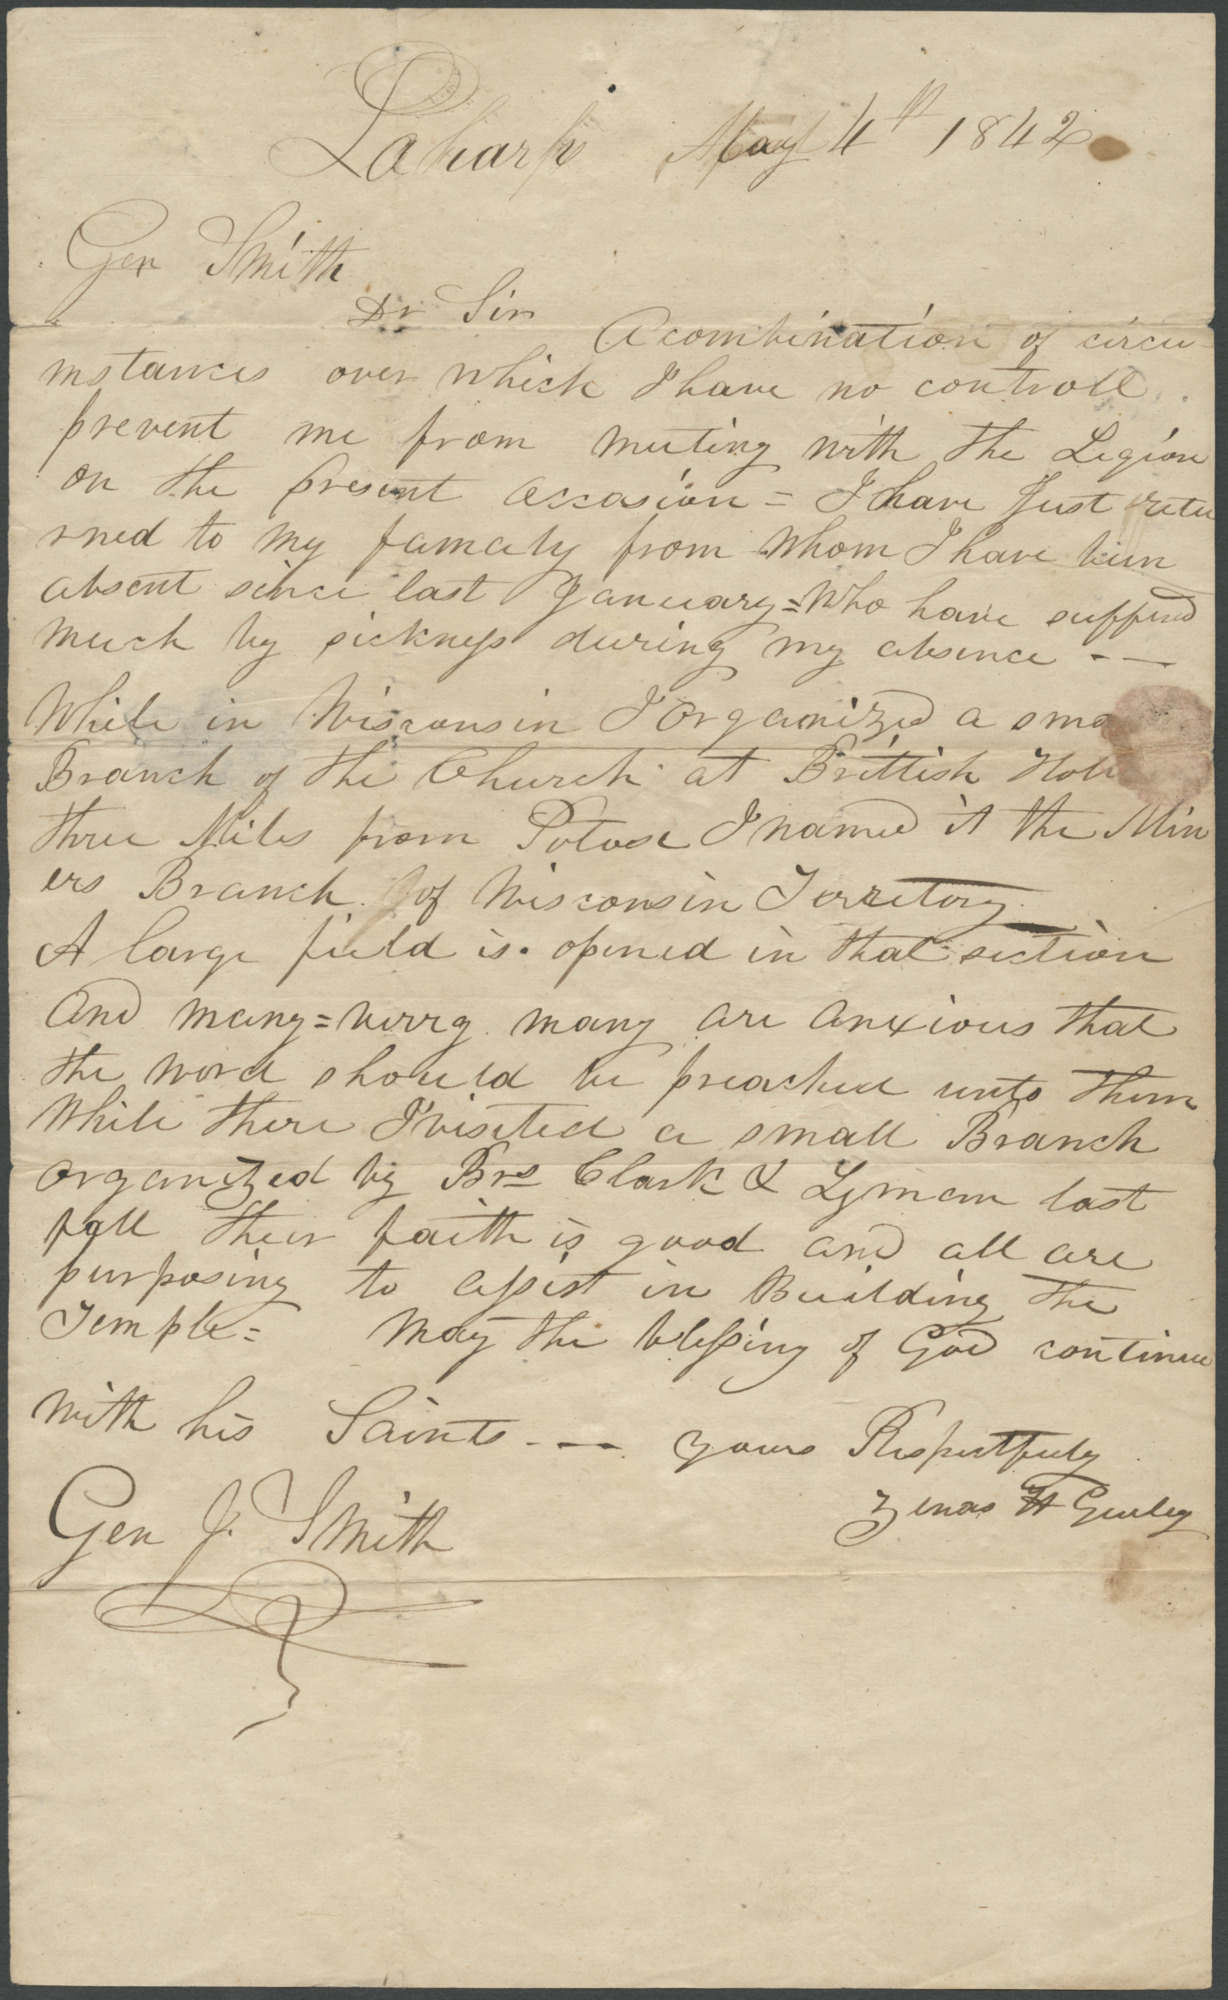 Laharp May 4th 1842
Gen Smith
Dr Sir A combination of circu-
mstances over which I have no controll
prevent me from meeting with the Legion
on the present occasion = I have Just retu
rned to my famaly from whom I have been
absent since last January = Who have suffered
much by sickness during my absence - —
While in Wisconsin I organized a sma
Branch of the Church at Brittish Holl
three Miles from Potose I named it the Min
ers Branch of Wisconsin Territory
A large field is opened in that section
and many = verry many are anxious that
the word should be preached unto them
While there I visited a small Branch
organized by Brs Clark & Lyman last
fall their faith is good and all are
purposing to assist in Building the
Temple = May the blessing of God continue
with his Saints - — yours Respectfuly
Zenas H Gurley
Gen J. Smith